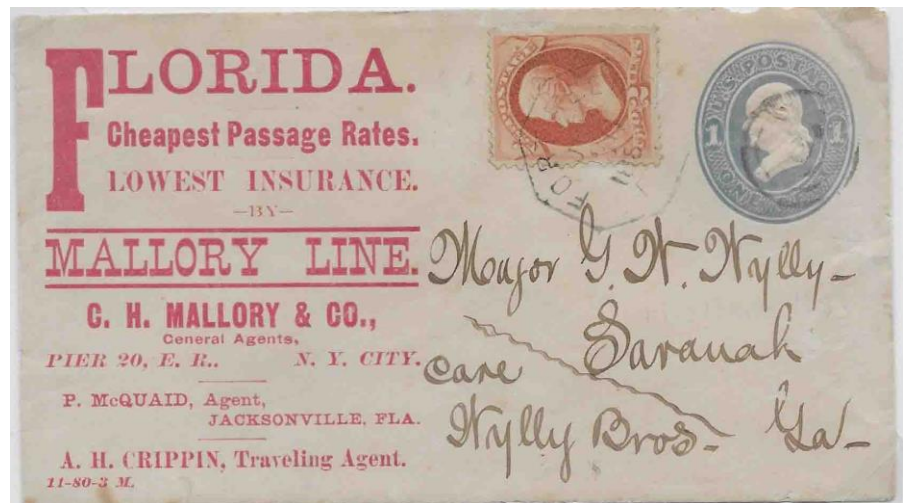 FLORIDA.
Cheapest Passage Rates.
LOWEST INSURANCE.
—BY—
MALLORY LINE.
C. H. MALLORY & CO.,
General Agents,
PIER 20, E. R.. N. Y. CITY.
P. McQUAID, Agent,
JACKSONVILLE, FLA.
A. H. CRIPPIN, Traveling Agent.
11-80-3 M.
POSTAGE
U.S. POSTAGE
1 1
ONE
Major G. W. Wylly-
Savanah
care
Wylly Bros- Ga-